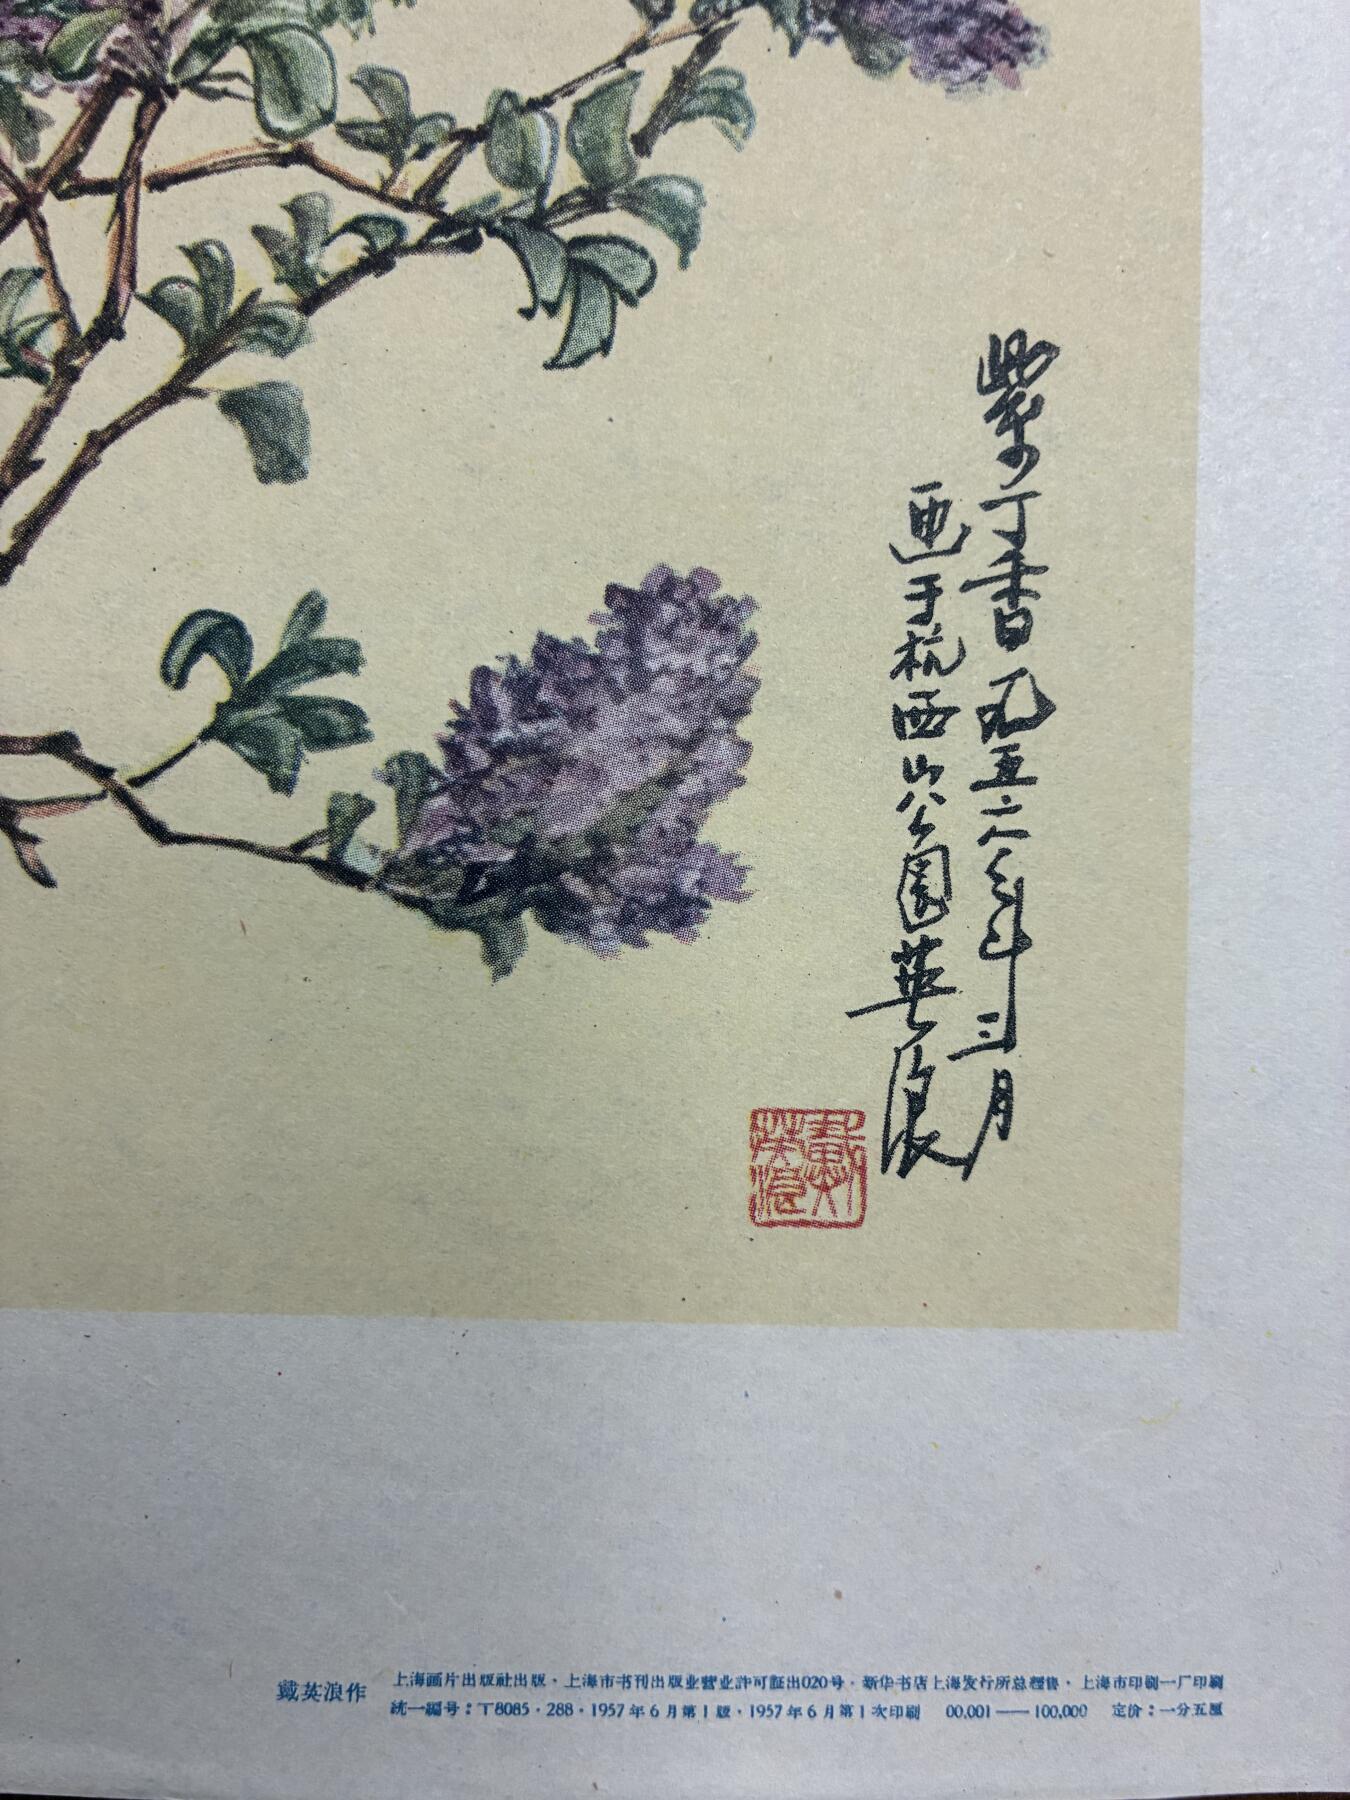 紫丁香 一九五六年三月
画于杭西山公园英浪
戴英浪
戴英浪作
上海画片出版社出版·上海市书刊出版业营业許可証出020号·新华书店上海发行所总經售·上海市印刷一厂印刷
統一編号：T8085·288·1957年6月第1版·1957年6月第1次印刷 00,001——100,000 定价：一分五厘